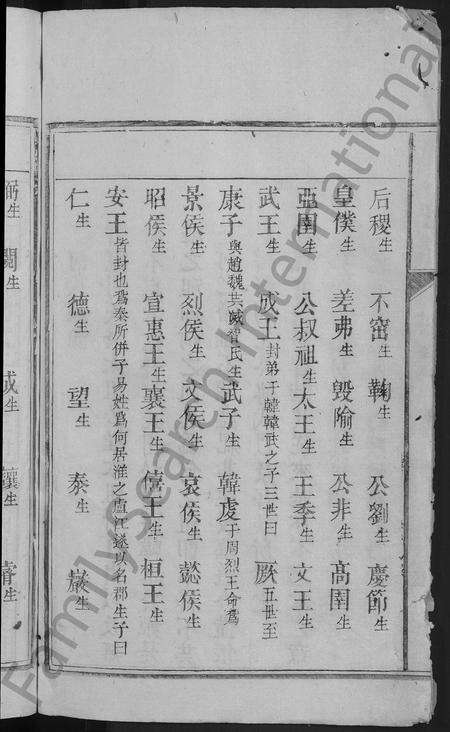 后稷生 不窋生 鞠生 公劉生 慶節生
皇僕生 差弗生 毀隃生 公非生 高圉生
亞圉生 公叔祖生 太王生 王季生 文王生
武王生 成王封弟于韓韓武之子三世曰 厥五世至
康子與趙魏共滅智氏生 武子生 韓虔于周烈王命爲
景侯生 烈侯生 文侯生 哀侯生 懿侯生
昭侯生 宣惠王生 襄王生 僖王生 桓王生
安王皆封也爲秦所併子易姓爲何居淮之廬江遂以名郡生子曰
仁生 德生 望生 泰生 巖生
弼生 閎生 成生 瓖生 睿生
FamilySearch International